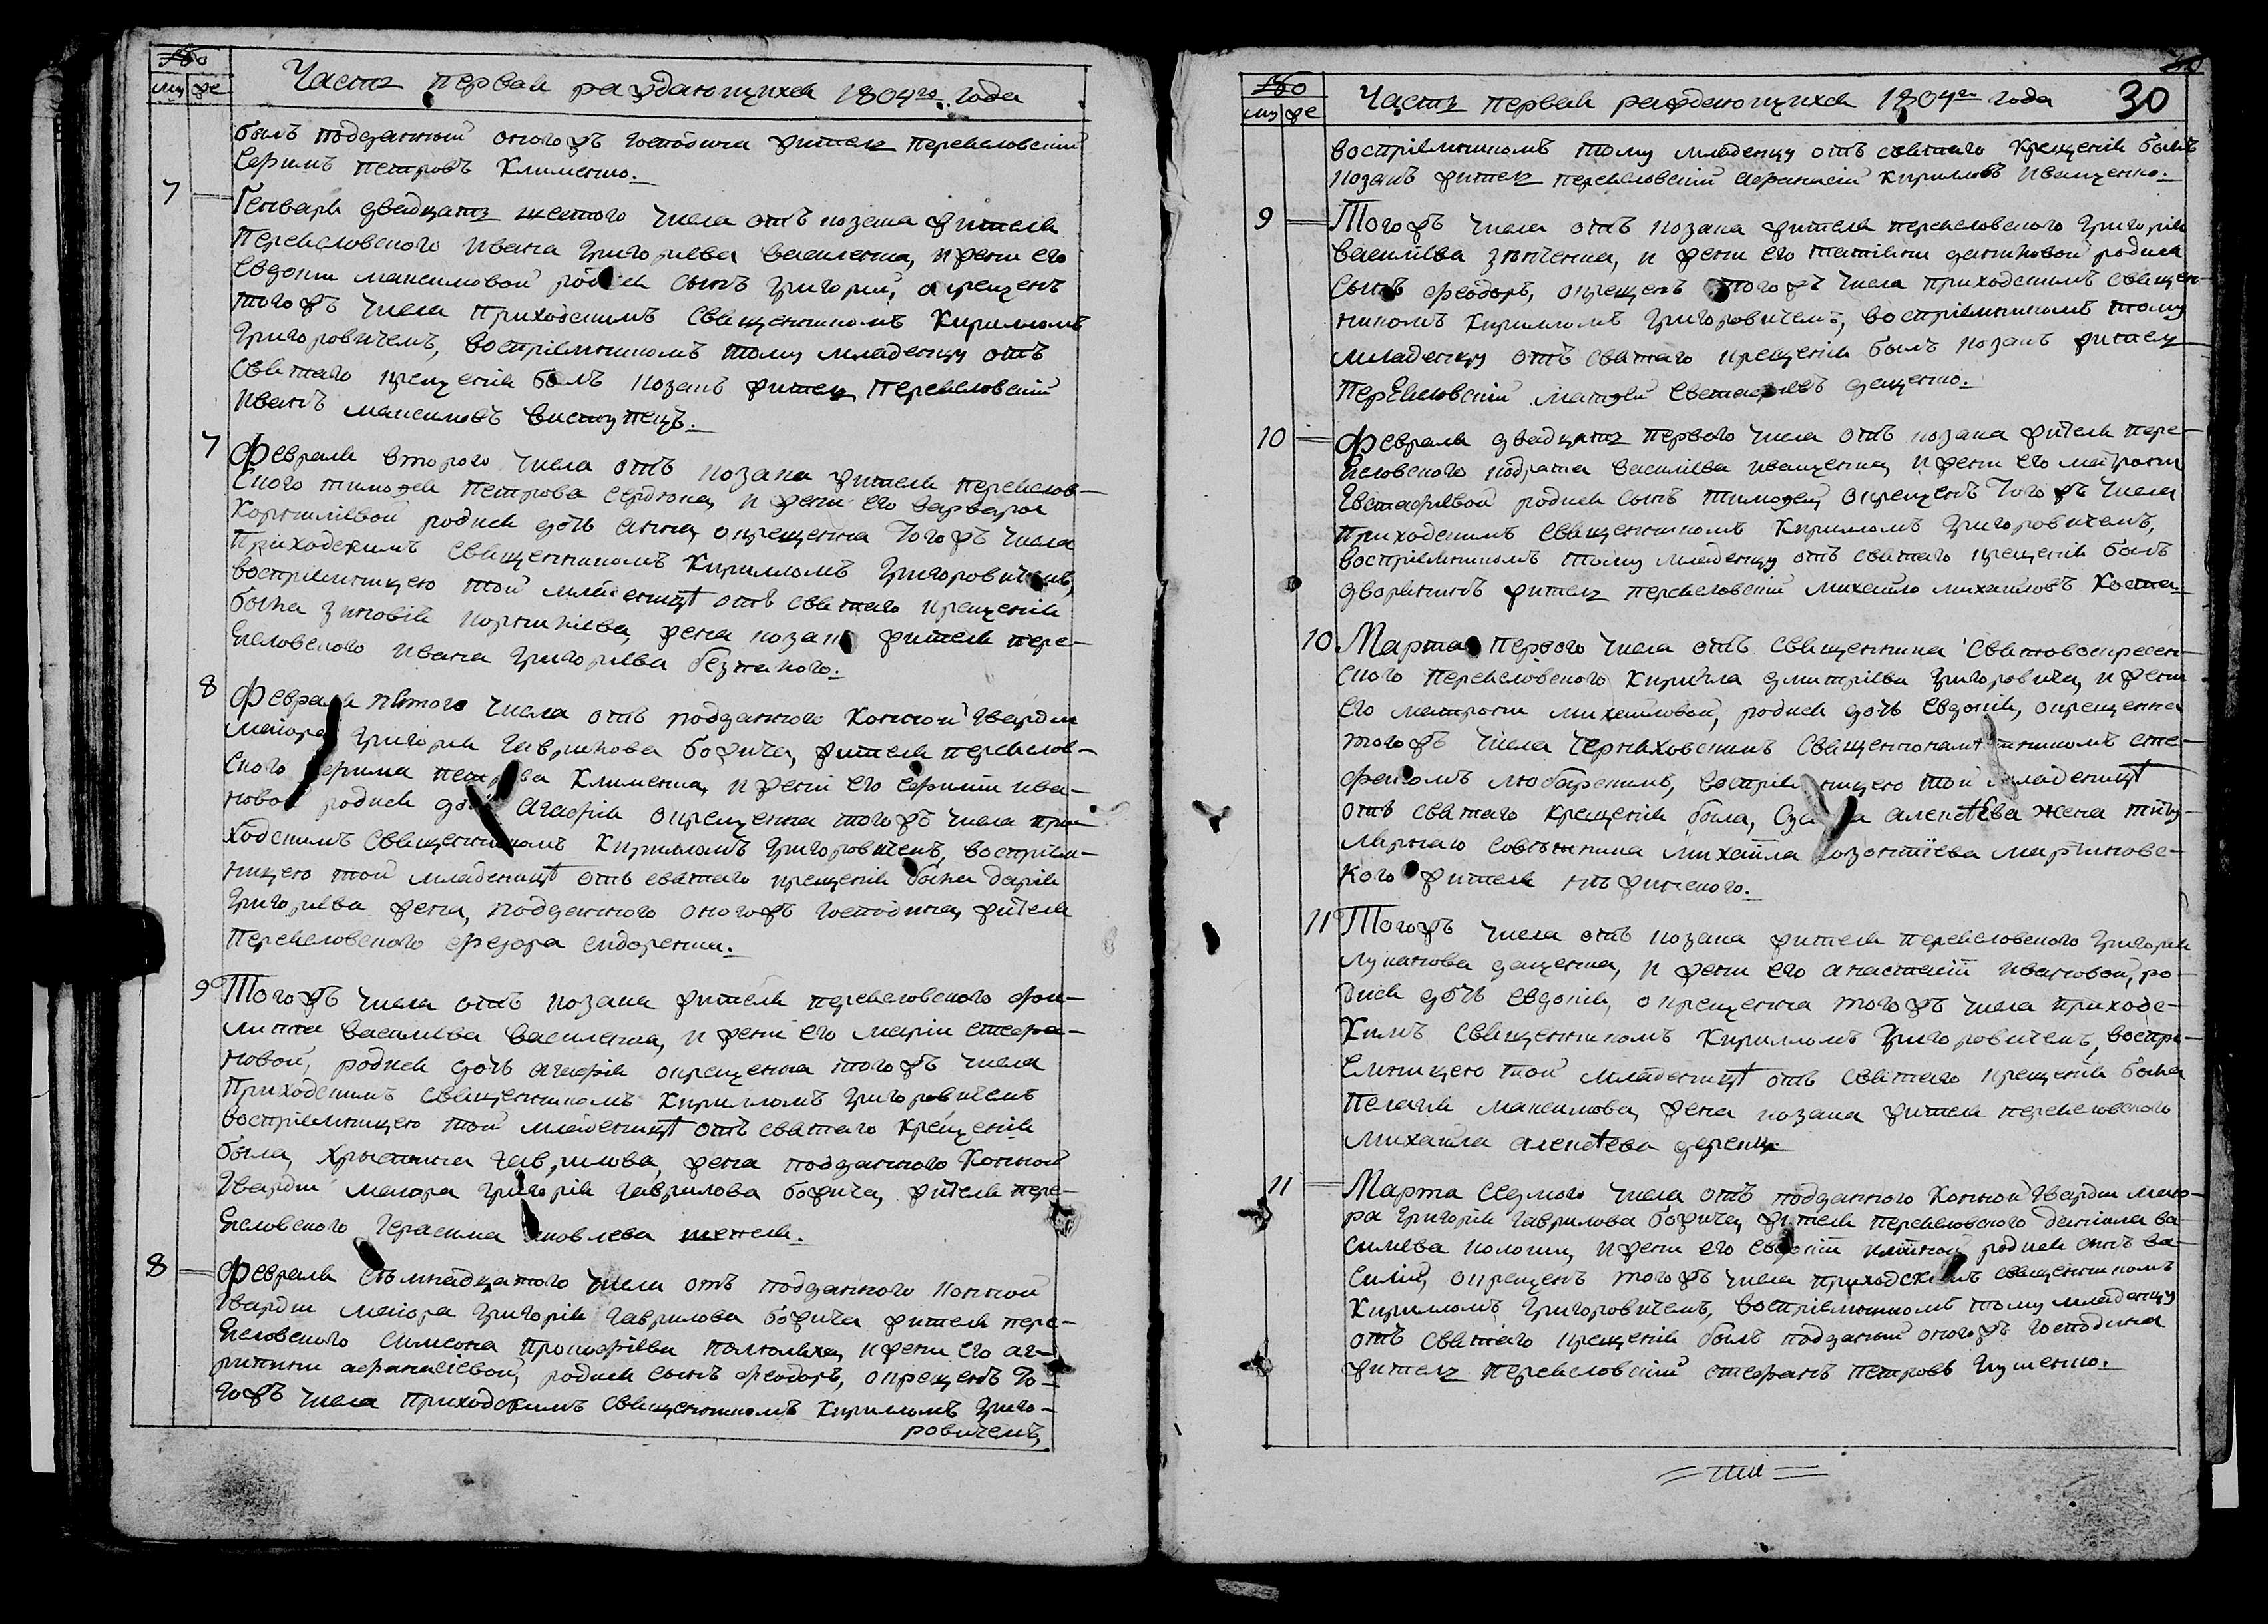 Часть первая раждающихся 1804го года
му же
былъ подданный оногожъ господина житель переясловскій
Ефимъ Петровъ Клименко.
7 Генваря двадцать шестого числа отъ козака жителя
Переясловского Ивана Григоріева Василенка, и жени его
Евдокіи Максимовой родися сынъ Григорій, окрещенъ
тогожъ числа приходскимъ священникомъ Кирилломъ
Григоровичемъ, воспріемникомъ тому младенцу отъ
святаго крещенія былъ козакъ житель Переясловскій
Иванъ Максимовъ
7 Февраля второго числа отъ козака жителя переяслов-
ского Тимофея Петрова Сердюка, и жени его Варвары
Корниліевой родися дочь Анна, окрещенна тогожъ числа
Приходскимъ священникомъ Кирилломъ Григоровичемъ,
воспріемницею той младеницѣ отъ святаго крещенія
была Зиновія Корниліева, жена козака жителя пере-
ясловского Ивана Григоріева
8 Февраля пятого числа отъ подданного Конной Гвардіи
маіора Григорія Гаврилова Божича, жителя переяслов-
ского Ефима Петрова Клименка, и жени его Ефиміи Ива-
новой родися дочь Агафія окрещенна тогожъ числа при-
ходскимъ священникомъ Кирилломъ Григоровичемъ, воспріем-
ницею той младеницѣ отъ святаго крещенія была Дарія
Григоріева жена, подданного оногожъ господина, жителя
Переясловского Федора Сидоренка.
9 Тогожъ числа отъ козака жителя переясловского Фи-
липпа Василіева Василенка, и жени его Маріи Стефа-
новой, родися дочь Агафія окрещенна тогожъ числа
Приходскимъ священникомъ Кирилломъ Григоровичемъ
воспріемницею той младеницѣ отъ святаго крещенія
была, Христина Гаврилова, жена подданного Конной
Гвардіи маіора Григорія Гаврилова Божича, жителя пере-
ясловского Герасима Яковлева
8 Февраля семнадцатого числа отъ подданного конной
Гвардіи маіора Григорія Гаврилова Божича жителя пере-
ясловского Симеона Прокофіева и жени его Аг-
рипини Афанасіевой, родися сынъ Феодоръ, окрещенъ то-
гожъ числа приходскимъ священникомъ Кирилломъ Григо-
ровичемъ,
Часть первая раждающихся 1804го года 30
му же
воспріемникомъ тому младенцу отъ святаго Крещенія былъ
козакъ житель переясловскій Афанасій Кириловъ Иващенко.
9 Тогожъ числа отъ козака жителя переясловского Григорія
Василіева и жени его Татіяни Даниловой родися
сынъ Феодоръ, окрещенъ тогожъ числа приходскимъ священ-
никомъ Кирилломъ Григоровичемъ, воспріемникомъ тому
младенцу отъ святаго крещенія былъ козакъ житель
Переясловскій Матфей Евстафіевъ Дащенко.
10 Февраля двадцать первого числа отъ козака жителя пере-
ясловского Кодрата Василіева Иващенка, и жени его Матрони
Евстафіевой родися сынъ Тимофей, окрещенъ тогожъ числа
приходскимъ священникомъ Кирилломъ Григоровичемъ,
воспріемникомъ тому младенцу отъ святаго крещенія былъ
дворянинъ житель переясловскій Михайло Михайловъ
10 Марта первого числа отъ священника Святовоскресен-
ского переясловского Кирилла Дмитріева Григоровича, и жени
его Матрони Михайловой, родися дочь Евдокія, окрещенна
тогожъ числа Черняховскимъ священно сте-
фаномъ воспріемницею той младеницѣ
отъ святаго Крещенія была, Алексѣева жена титу-
лярнаго совѣтника Михайла Мартинов-
кого жителя нѣжинского.
11 Тогожъ числа отъ козака жителя переясловского Григорія
Лукянова Дащенка, и жени его Анастасіи Ивановой, ро-
дися дочь Евдокія, окрещенна тогожъ числа приходс-
кимъ священникомъ Кирилломъ Григоровичемъ, воспрі-
емницею той младеницѣ отъ святаго крещенія была
Пелагія Максимова, жена козака жителя переясловского
Михайла Алексѣева
11 Марта седмого числа отъ подданного Конной Гвардіи маіо-
ра Григорія Гаврилова Божича, жителя переясловского Даніила Ва-
силіева и жени его родися сынъ Ва-
силій, окрещенъ тогожъ числа приходскимъ священникомъ
Кирилломъ Григоровичемъ, воспріемникомъ тому младенцу
отъ святаго крещенія былъ подданый оногожъ господина
житель переясловскій Стефанъ Петровъ